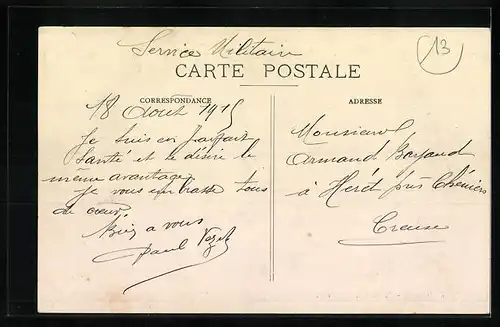 Service Militaire
13
CARTE POSTALE
CORRESPONDANCE
ADRESSE
18 Aout 1915
Je suis en parfait
Santé et te désire le
même avantage
Je vous embrasse tous
de coeur
Bien a vous
Paul
Monsieur
Armand
à près Chéniers
Creuse